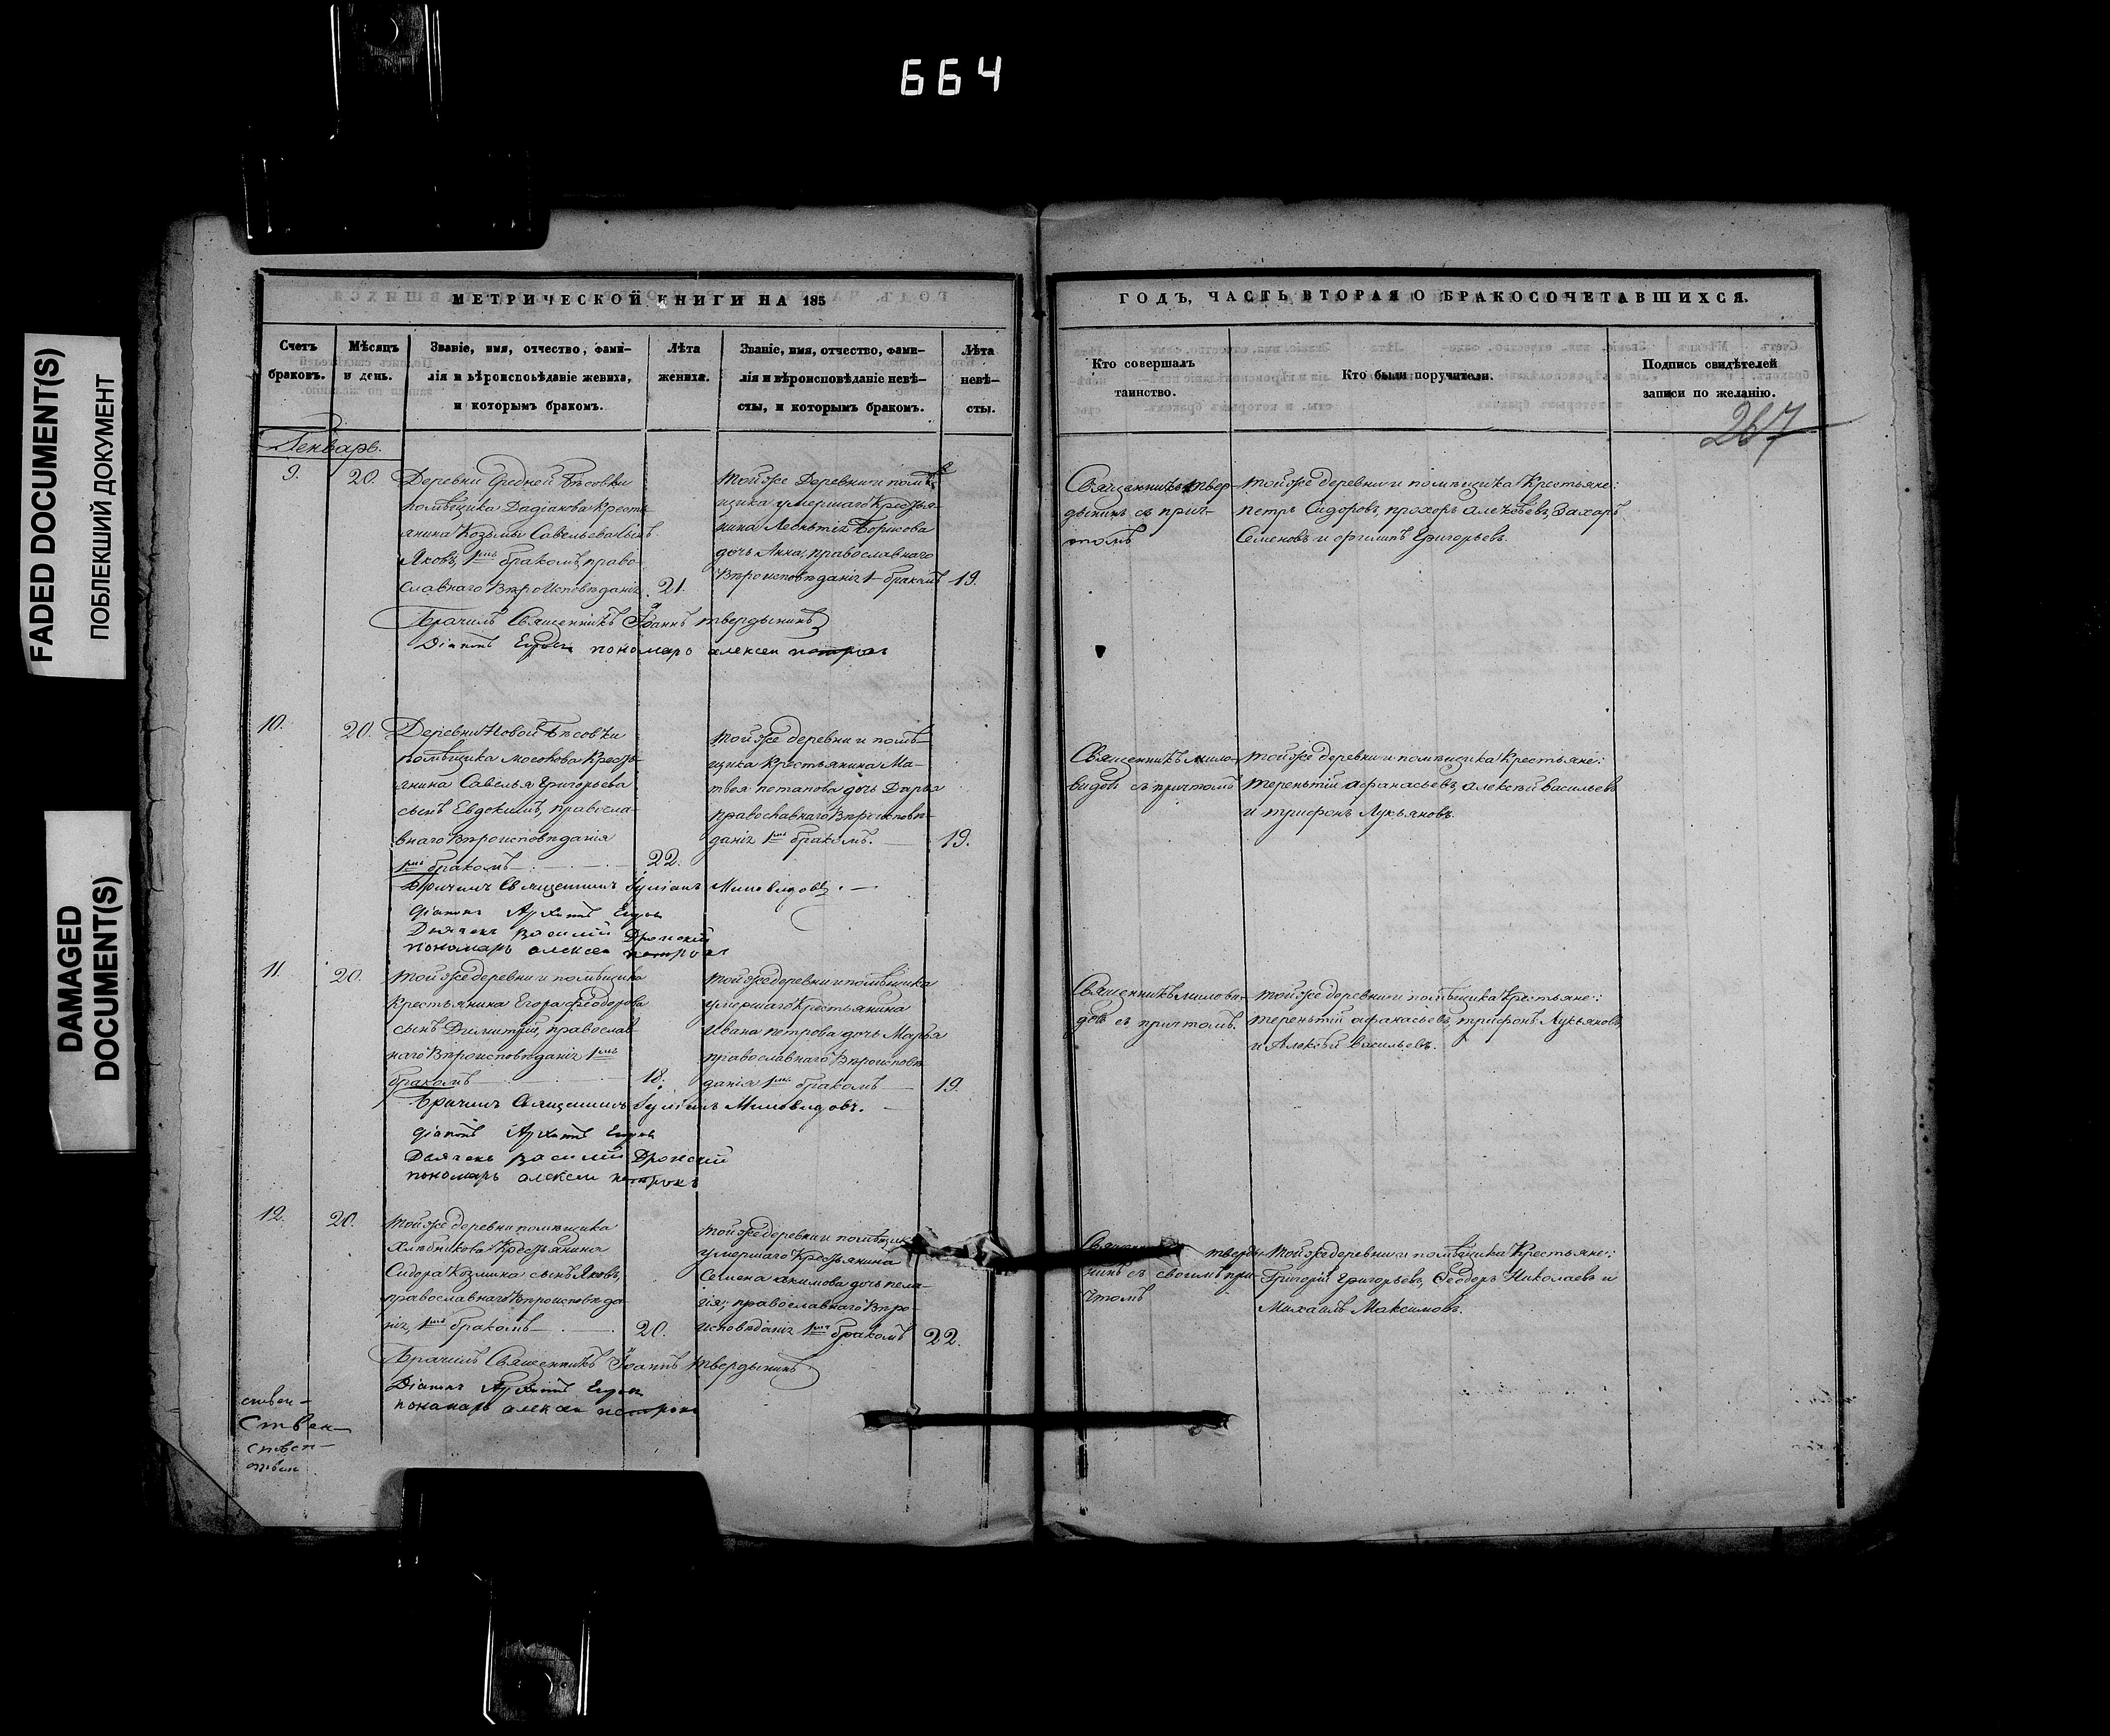 664
FADED DOCUMENT(S)
ПОБЛЕКШИЙ ДОКУМЕНТ
DAMAGED
DOCUMENT(S)
МЕТРИЧЕСКОЙ КНИГИ НА 185
Счетъ
браковъ.
Мѣсяцъ
и день.
Званіе, имя, отчество, фами-
лія и вѣроисповѣданіе жениха,
и которымъ бракомъ.
Лѣта
жениха.
Званіе, имя, отчество, фами-
лія и вѣроисповѣданіе невѣ-
сты, и которымъ бракомъ.
Лѣта
невѣ-
сты.
ГОДЪ, ЧАСТЬ ВТОРАЯ О БРАКОСОЧЕТАВШИХСЯ.
Кто совершалъ
таинство.
Кто были поручители.
Подпись свидѣтелей
записи по желанію.
267
Генварь.
9.
20.
Деревни Средней Бѣсовки
помѣщика Дадіанова Кресть
янина Козьмы Савельева сынъ
Яковъ, 1мъ бракомъ, право-
славнаго Вѣроисповѣданія.
21.
той же Деревни и помѣ-
щика умершаго Крестья-
нина Леонтія Борисова
дочь Анна, православнаго
Вѣроисповѣданія 1 бракомъ
19.
Священникъ Твер-
дынинъ съ прич-
томъ
той же деревни и помѣщика Крестьяне:
петръ Сидоровъ, прохоръ Алексѣевъ, Захаръ
Семеновъ и филипъ Григорьевъ.
Брачилъ Священникъ Іоаннъ Твердынинъ
Діаконъ Егоровъ пономарь алексеи петровъ
10.
20.
Деревни Новой Бѣсовки
помѣщика Мосолова Кресть-
янина Савелья Григорьева
сынъ Евдокимъ, правосла-
внаго Вѣроисповѣданія
1мъ бракомъ
22.
той же деревни и помѣ-
щика Крестьянина Ма-
твея потапова дочь Дарья
православнаго Вѣроисповѣ-
данія 1мъ бракомъ.
19.
Священникъ Мило-
видовъ съ причтомъ
той же деревни и помѣщика Крестьяне:
терентій афанасьевъ, алексѣй васильевъ
и трифонъ Лукьяновъ.
Брачилъ Священникъ Іуліанъ Миловидовъ.
діаконъ Архипъ Егоровъ
Дьячекъ Василій
пономарь алексеи петровъ
11.
20.
той же деревни и помѣщика
Крестьянина Егора Феодорова
сынъ Димитрій, православ
наго Вѣроисповѣданія 1мъ
бракомъ
18.
той же деревни и помѣщика
умершаго Крестьянина
Ивана петрова дочь Марья
православнаго Вѣроисповѣ
данія 1мъ бракомъ
19.
Священникъ Милови-
довъ съ причтомъ.
той же деревни и помѣщика Крестьяне:
терентій афанасьевъ, трифонъ Лукьяновъ
и Алексѣй васильевъ.
Брачилъ Священникъ Іуліанъ Миловидовъ.
діаконъ Архипъ Егоровъ
Дьячекъ Василій
пономарь алексеи петровъ
12.
20.
той же деревни помѣщика
Хлѣбникова Крестьянина
Сидора Козмина сынъ Яковъ,
православнаго Вѣроисповѣда-
нія, 1мъ бракомъ
20.
той же деревни и помѣщика
умершаго Крестьянина
Семена акимова дочь пела-
гія, православнаго Вѣро-
исповѣданія 1мъ бракомъ
22.
тверды-
нинъ съ своимъ при-
чтомъ
той же деревни и помѣщика Крестьяне:
Григорій Григорьевъ, Феодоръ Николаевъ и
Михаилъ Максимовъ.
Брачилъ Священникъ Іоаннъ Твердынинъ
Діаконъ Архипъ Егоровъ
пономарь алексеи петровъ
ствен-
Ствен-
ствен-
ствен